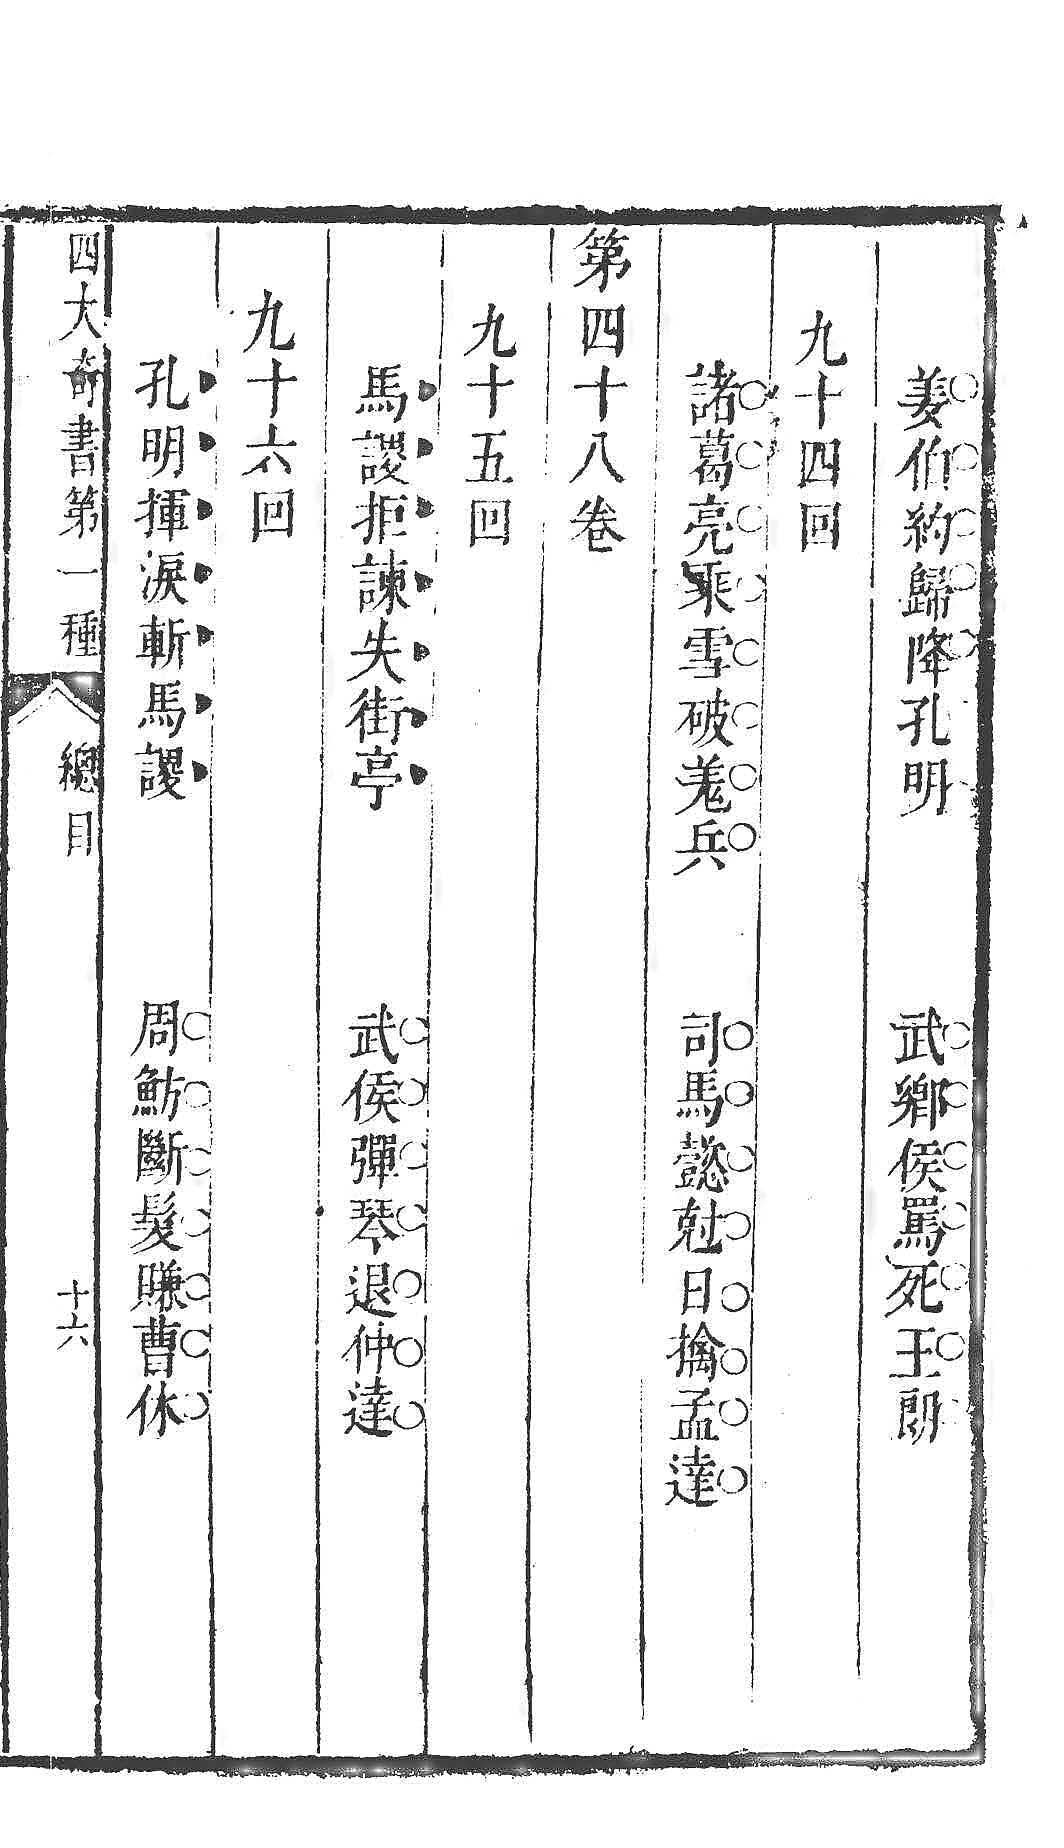 姜伯約歸降孔明　武鄉侯罵死王朗
九十四回
諸葛亮乘雪破羗兵　司馬懿尅日擒孟達
第四十八卷
九十五回
馬謖拒諫失街亭　武侯彈琴退仲達
九十六回
孔明揮淚斬馬謖　周魴斷髮賺曹休
四大奇書第一種　總目　十六